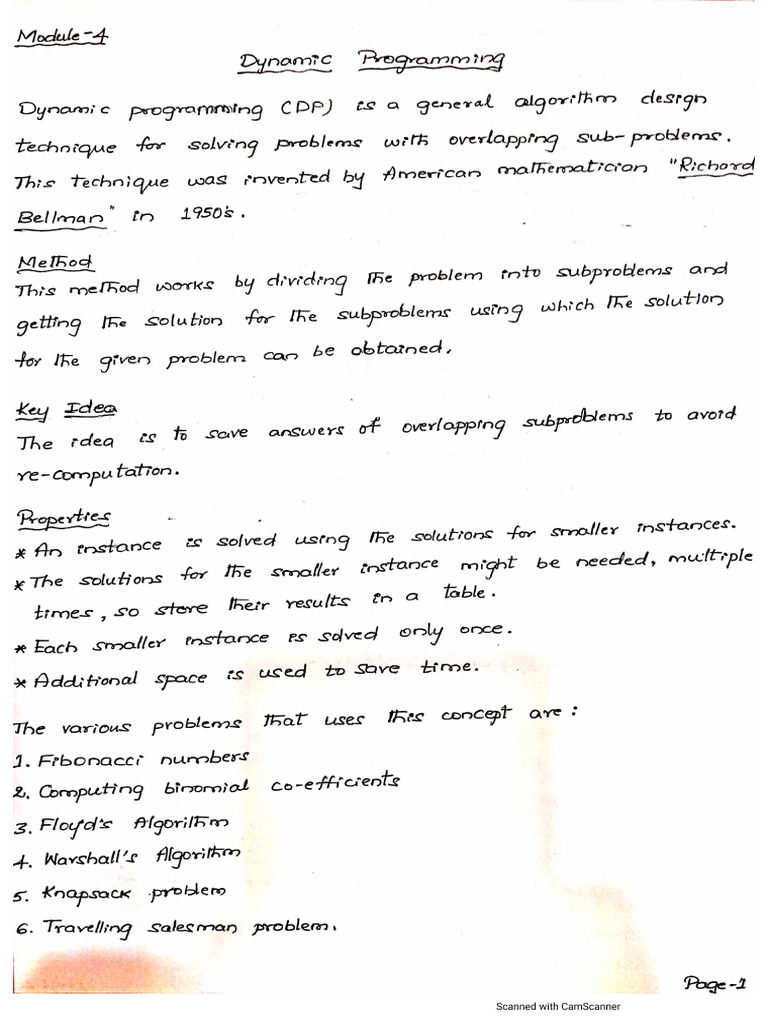 Module-4
Dynamic Programming
Dynamic programming (DP) is a general algorithm design
technique for solving problems with overlapping sub-problems.
This technique was invented by American mathematician "Richard
Bellman" in 1950's.
Method
This method works by dividing the problem into subproblems and
getting the solution for the subproblems using which the solution
for the given problem can be obtained.
Key Idea
The idea is to save answers of overlapping subproblems to avoid
re-computation.
Properties
* An instance is solved using the solutions for smaller instances.
* The solutions for the smaller instance might be needed, multiple
times, so store their results in a table.
* Each smaller instance is solved only once.
* Additional space is used to save time.
The various problems that uses this concept are:
1. Fibonacci numbers
2. Computing binomial co-efficients
3. Floyd's Algorithm
4. Warshall's Algorithm
5. Knapsack problem
6. Travelling salesman problem.
Page-1
Scanned with CamScanner